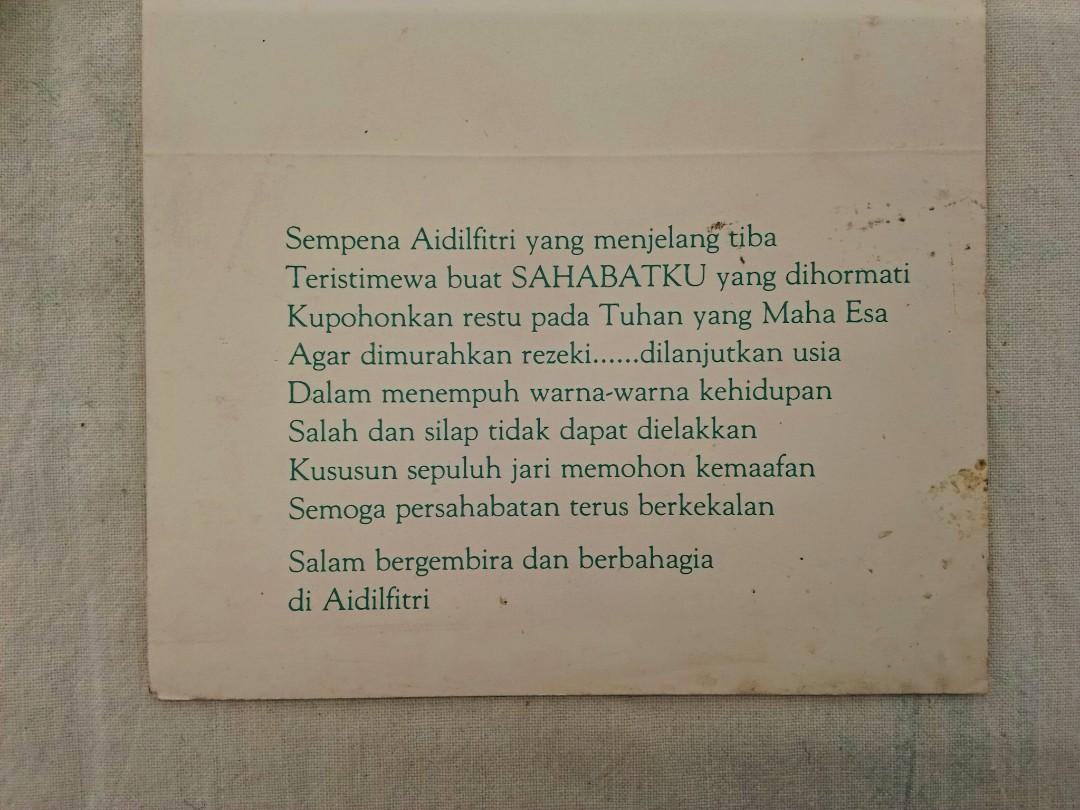 Sempena Aidilfitri yang menjelang tiba
Teristimewa buat SAHABATKU yang dihormati
Kupohonkan restu pada Tuhan yang Maha Esa
Agar dimurahkan rezeki......dilanjutkan usia
Dalam menempuh warna-warna kehidupan
Salah dan silap tidak dapat dielakkan
Kususun sepuluh jari memohon kemaafan
Semoga persahabatan terus berkekalan
Salam bergembira dan berbahagia
di Aidilfitri